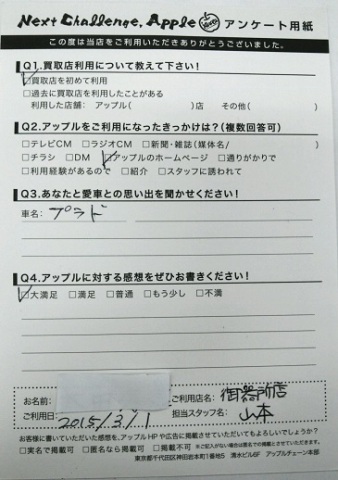 Next Challenge, Apple アンケート用紙
この度は当店をご利用いただきありがとうございました。
Q1.買取店利用について教えて下さい!
□買取店を初めて利用
□過去に買取店を利用したことがある
利用した店舗: アップル( )店 その他( )
Q2.アップルをご利用になったきっかけは?(複数回答可)
□テレビCM □ラジオCM □新聞・雑誌(媒体名/ )
□チラシ □DM □アップルのホームページ □通りがかりで
□利用経験があるので □紹介 □スタッフに誘われて
Q3.あなたと愛車との思い出を聞かせください!
車名: プラド
Q4.アップルに対する感想をぜひお書きください!
□大満足 □満足 □普通 □もう少し □不満
お名前: ご利用店名: 御器所店
ご利用日: 2015/3/1 担当スタッフ名: 山本
お客様に書いていただいた感想を、アップルHPや広告に掲載させていただいてもよろしいでしょうか?
□実名で掲載可 □匿名なら掲載可 □掲載不可 ※ご記入がない場合は匿名での掲載とさせていただきます。
東京都千代田区神田岩本町1番地5 清水ビル6F アップルチェーン本部